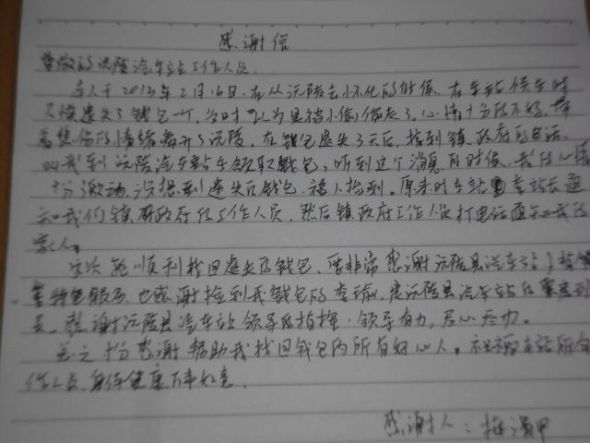 感谢信
尊敬的沅陵汽车站工作人员
本人于2013年2月16日,在从沅陵去怀化的时候,在车站候车时
不慎遗失了钱包一个,当时以为是被小偷偷走了,心情十分的不好,带
着焦伤的情绪离开了沅陵,在钱包遗失了天后,接到镇政府的电话,
叫我到沅陵汽车站去领取钱包,听到这个消息的时候,我的心情
十分激动,没想到遗失的钱包被人捡到,原来时车站站长通
知我们镇政府的工作人员,然后镇政府工作人员打电话通知我的
家人。
这次能顺利找回遗失的钱包,要非常感谢沅陵县汽车站
服务,也感谢捡到我钱包的李,是沅陵县汽车站的
员,感谢沅陵县汽车站领导的指挥,领导有力,尽心尽力。
总之十分感谢帮助我找回钱包的所有好心人。祝车站所有
作人员,身体健康万事如意。
感谢人: